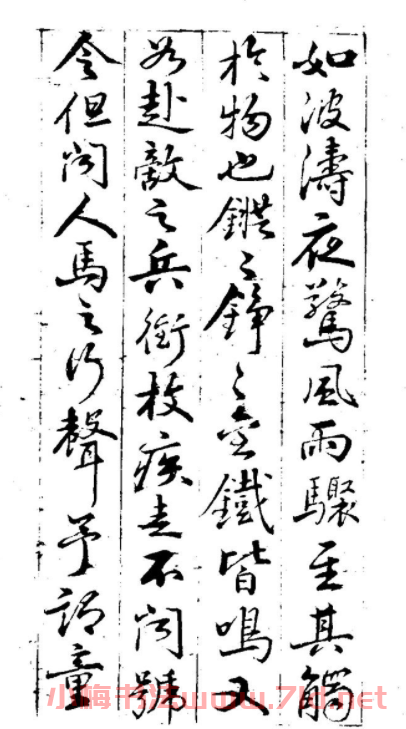 如波濤夜驚風雨驟至其觸
於物也鏦〻錚〻金鐵皆鳴又
如赴敵之兵銜枚疾走不聞號
令但聞人馬之行聲予謂童
小梅书法www.7ld.net